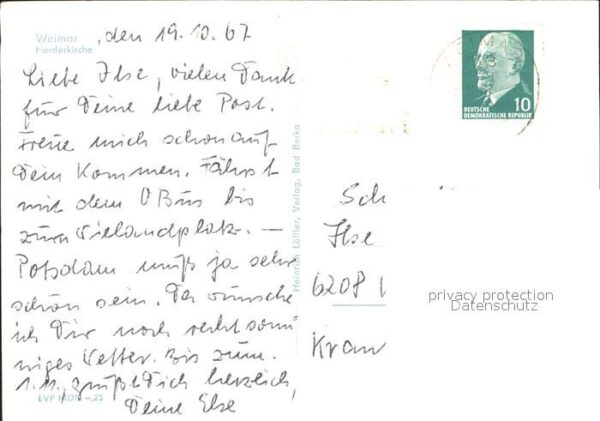 Weimar, den 19.10.67
Herderkirche
Liebe Ilse, vielen Dank
für Deine liebe Post.
Freue mich schon auf
Dein Kommen. Fährst
mit dem OBus bis
zum Wielandplatz. —
Potsdam muß ja sehr
schön sein. Da wünsche
ich Dir noch recht son-
niges Wetter. Bis zum
1.11. grüßt Dich herzlich,
Deine Else
EVP MDN -,25
Heinrich Löffler, Verlag, Bad Berka
10
DEUTSCHE
DEMOKRATISCHE REPUBLIK
Sch
Ilse
6208
Kran
privacy protection
Datenschutz